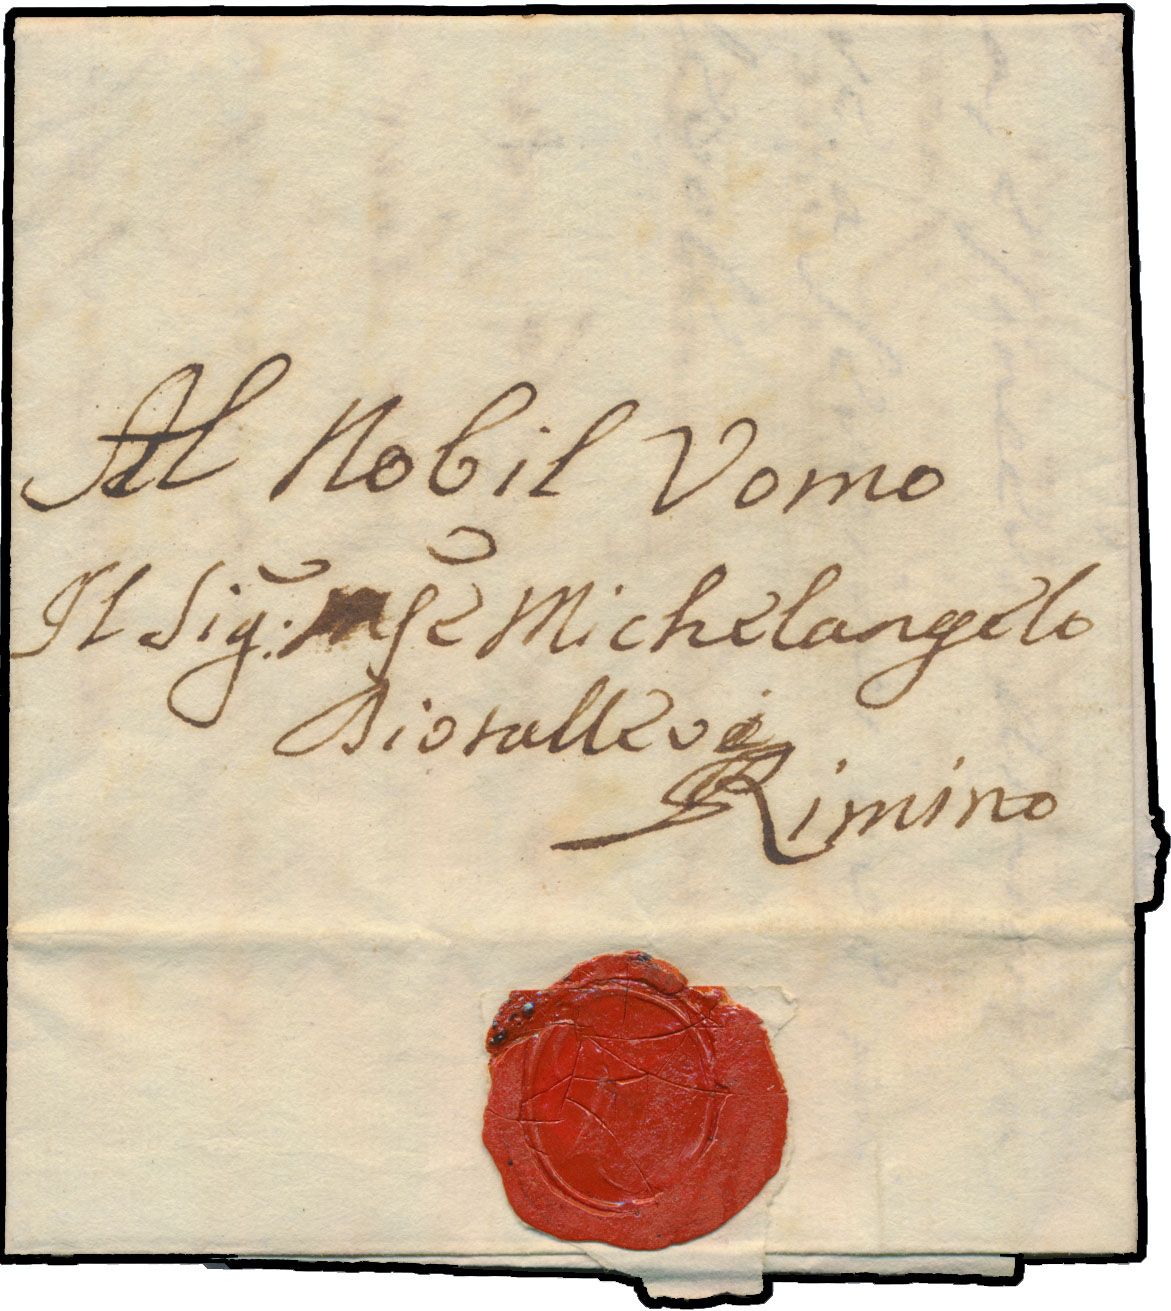 Al Nobil Vomo
Il Sig: Michelangelo
Diotallevi
Rimino